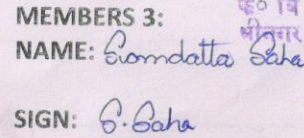 MEMBERS 3:
NAME: Somdatta Saha
SIGN: S. Saha